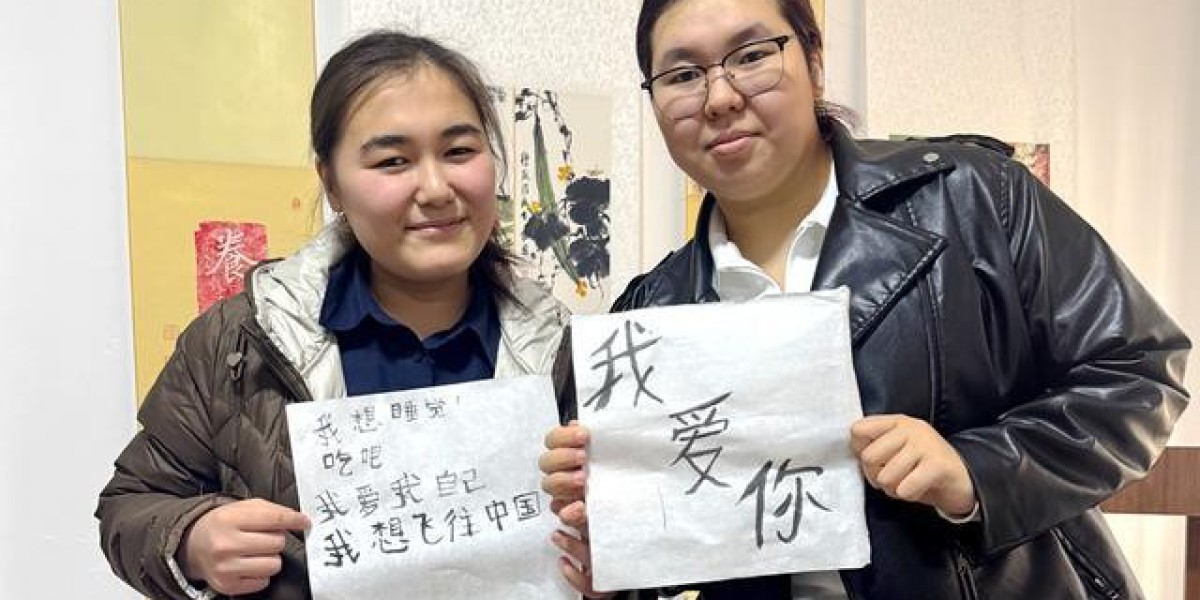 養
我想睡觉!
吃吧
我爱我自己
我想飞往中国
我
爱
你